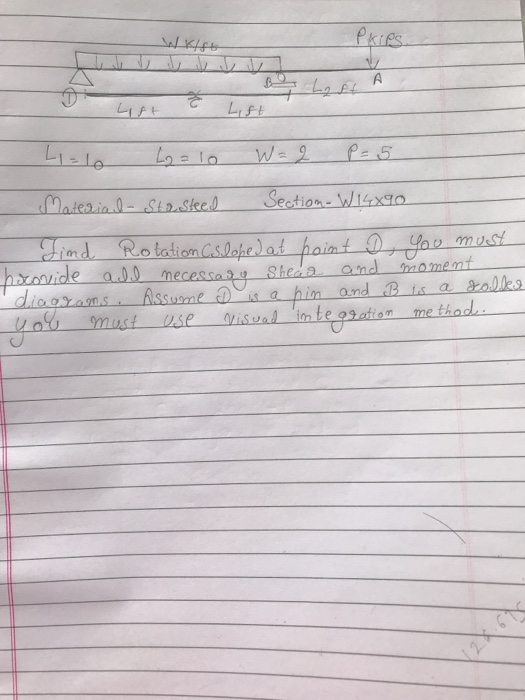 W K/ft PKips
B A
D C L2 ft
L1 ft L1 ft
L1=10 L2=10 W=2 P=5
Material- Sta.Steel Section-W14x90
Find Rotation (slope) at point D, you must
provide all necessary shear and moment
diagrams. Assume D is a pin and B is a roller
you must use visual integration method.